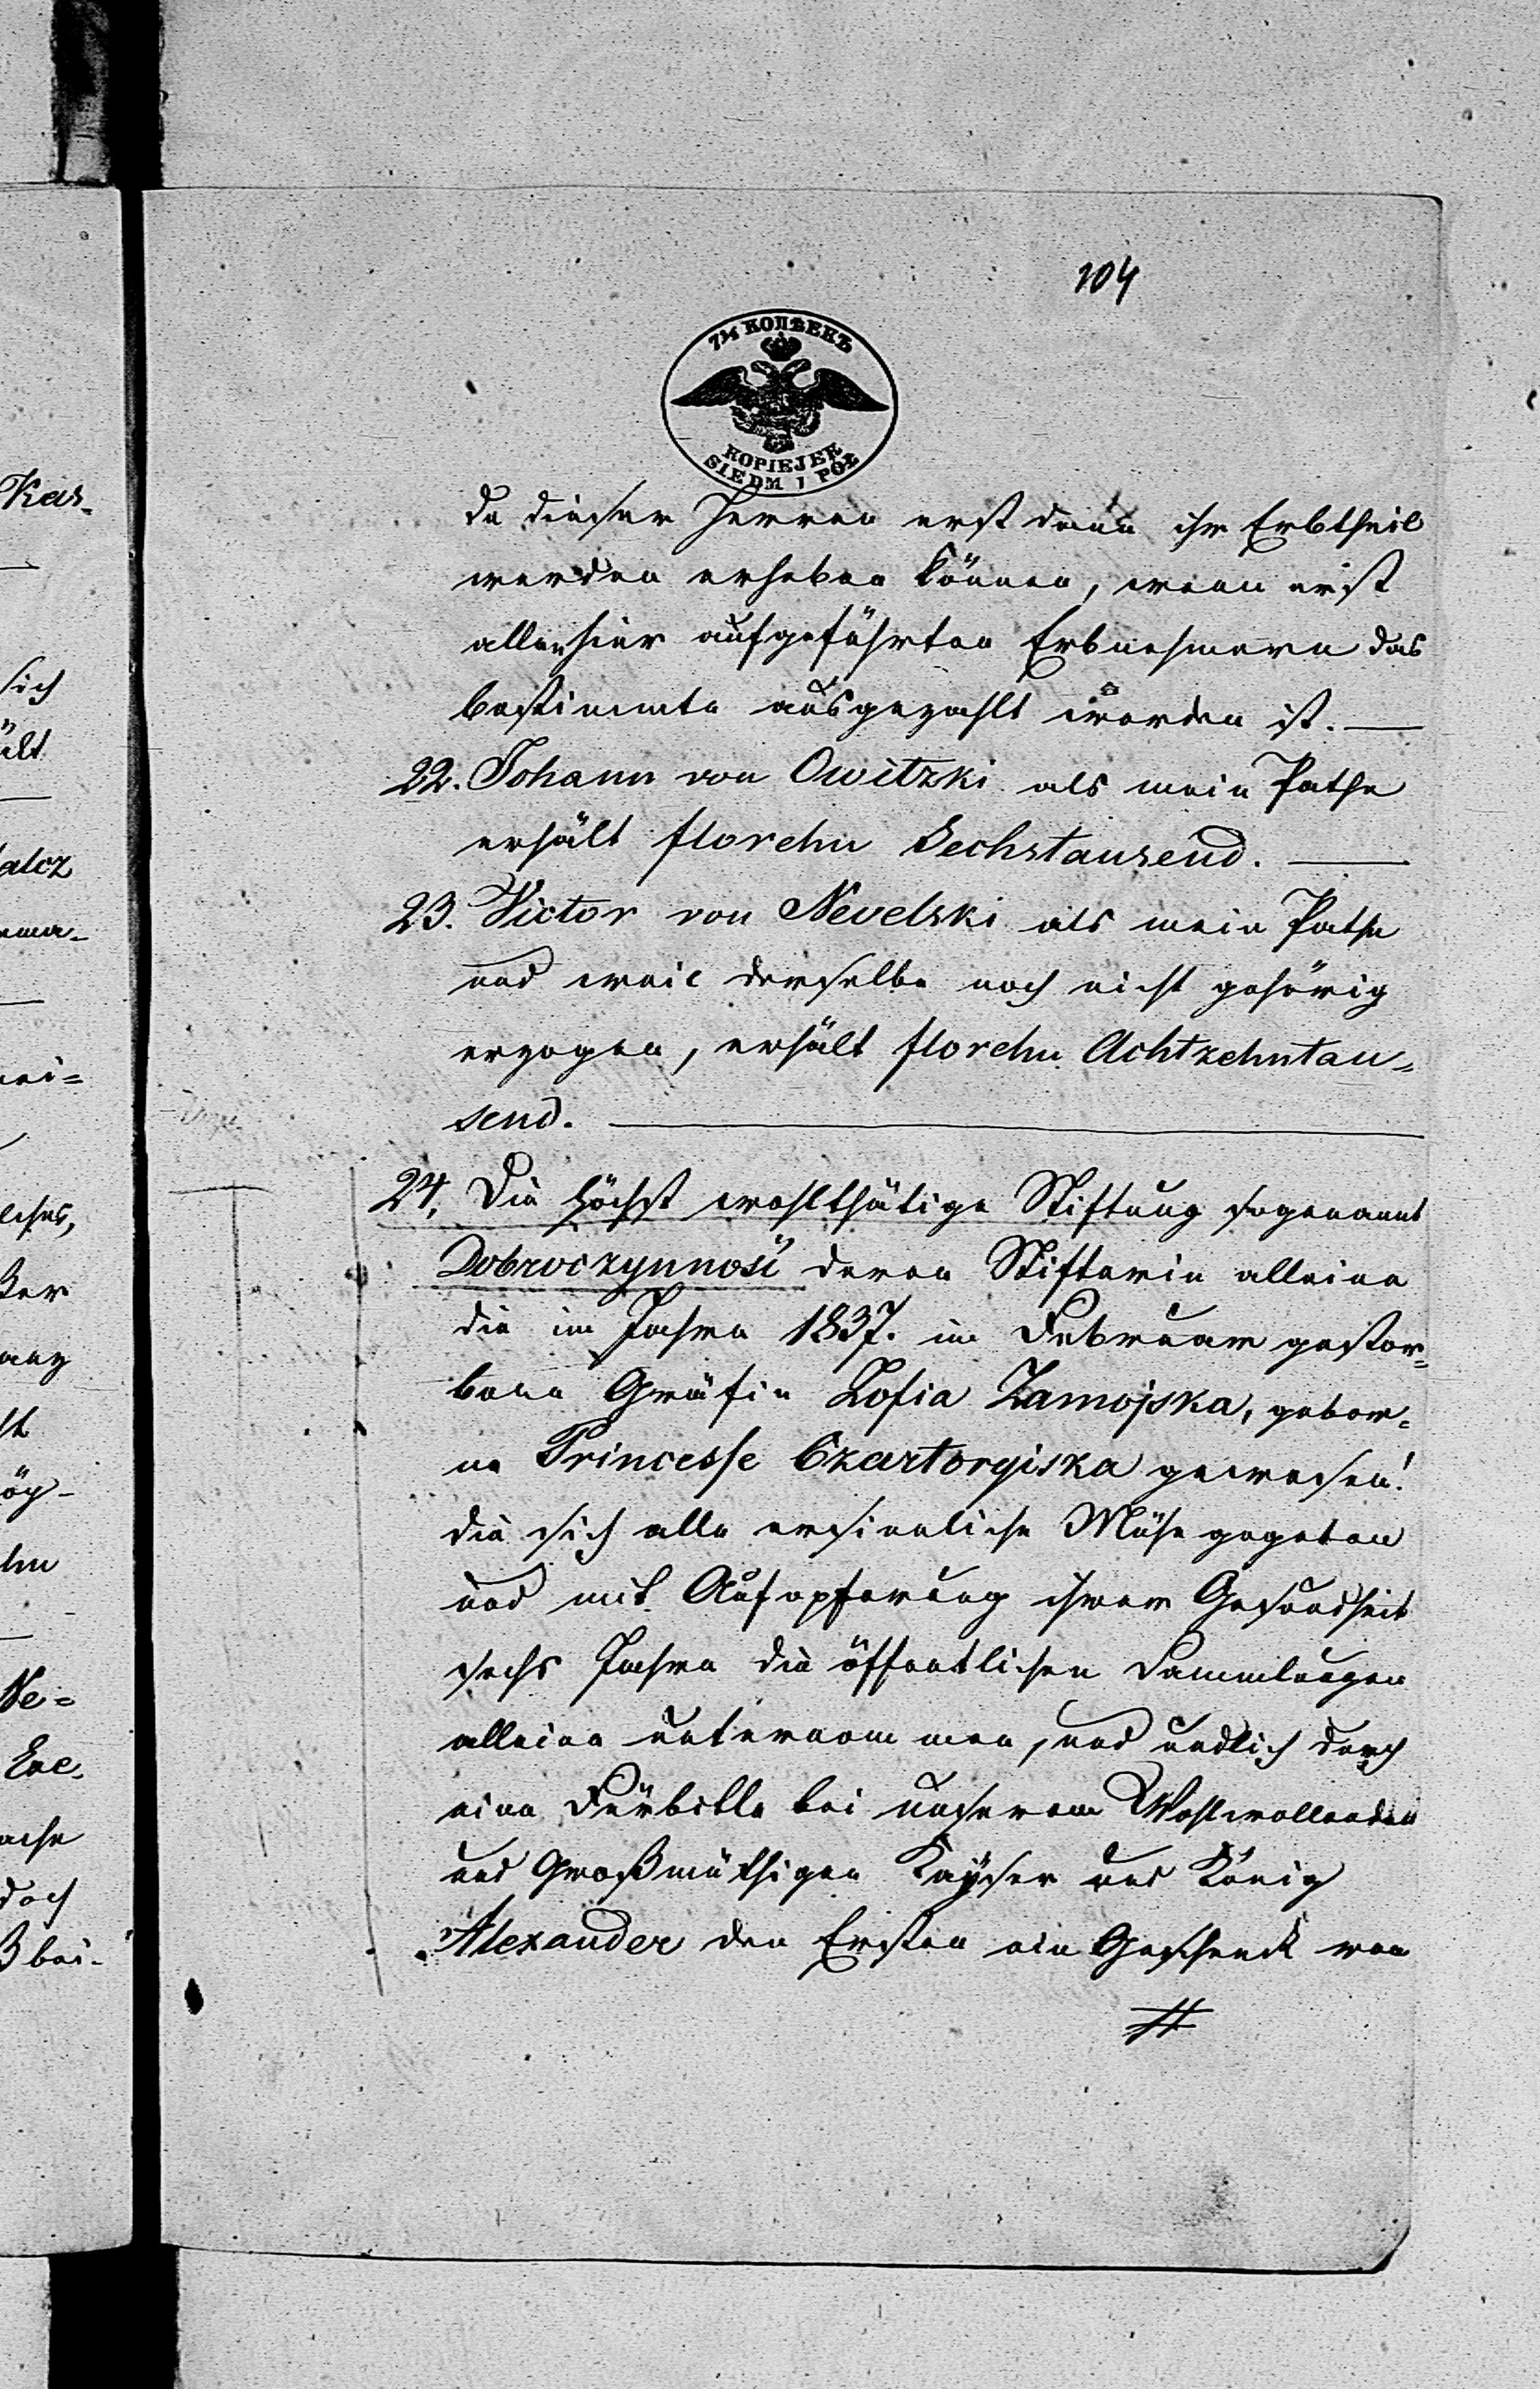 104
7½ КОПѢЕКЪ
KOPIEJEK
SIEDM I PÓŁ
da dieser Herren erst dann ihr Erbtheil
werden erheben können, wenn erst
allen hier aufgeführten Erbnehmern das
bestimmte ausgezahlt worden ist. —
22. Johann von Owitzki als mein Pathe
erhält florehn Sechstausend. —
23. Victor von Nevelski als mein Pathe
und weil derselbe noch nicht gehörig
erzogen, erhält florehn Achtzehntau=
send. —
24, Die höchst wohlthätige Stiftung sogenannt
Dobroczynność deren Stifterin alleine
die im Jahre 1837. im Februar gestor=
bene Gräfin Zofia Zamojska, gebor=
ne Princesse Czartorgiska gewesen!
die sich alle ersinnliche Mühe gegeben
und mit Aufopferung ihrer Gesundheit
sechs Jahre die öffentlichen Sammlungen
alleine unternommen, und endlich durch
eine Fürbitte bei unserem Wohlwollenden
und Großmüthigen Kayser und König
Alexander den Ersten ein Geschenk von
Kas=
sich
ält
alcz
ßer
Ne=
doch
ß bei=